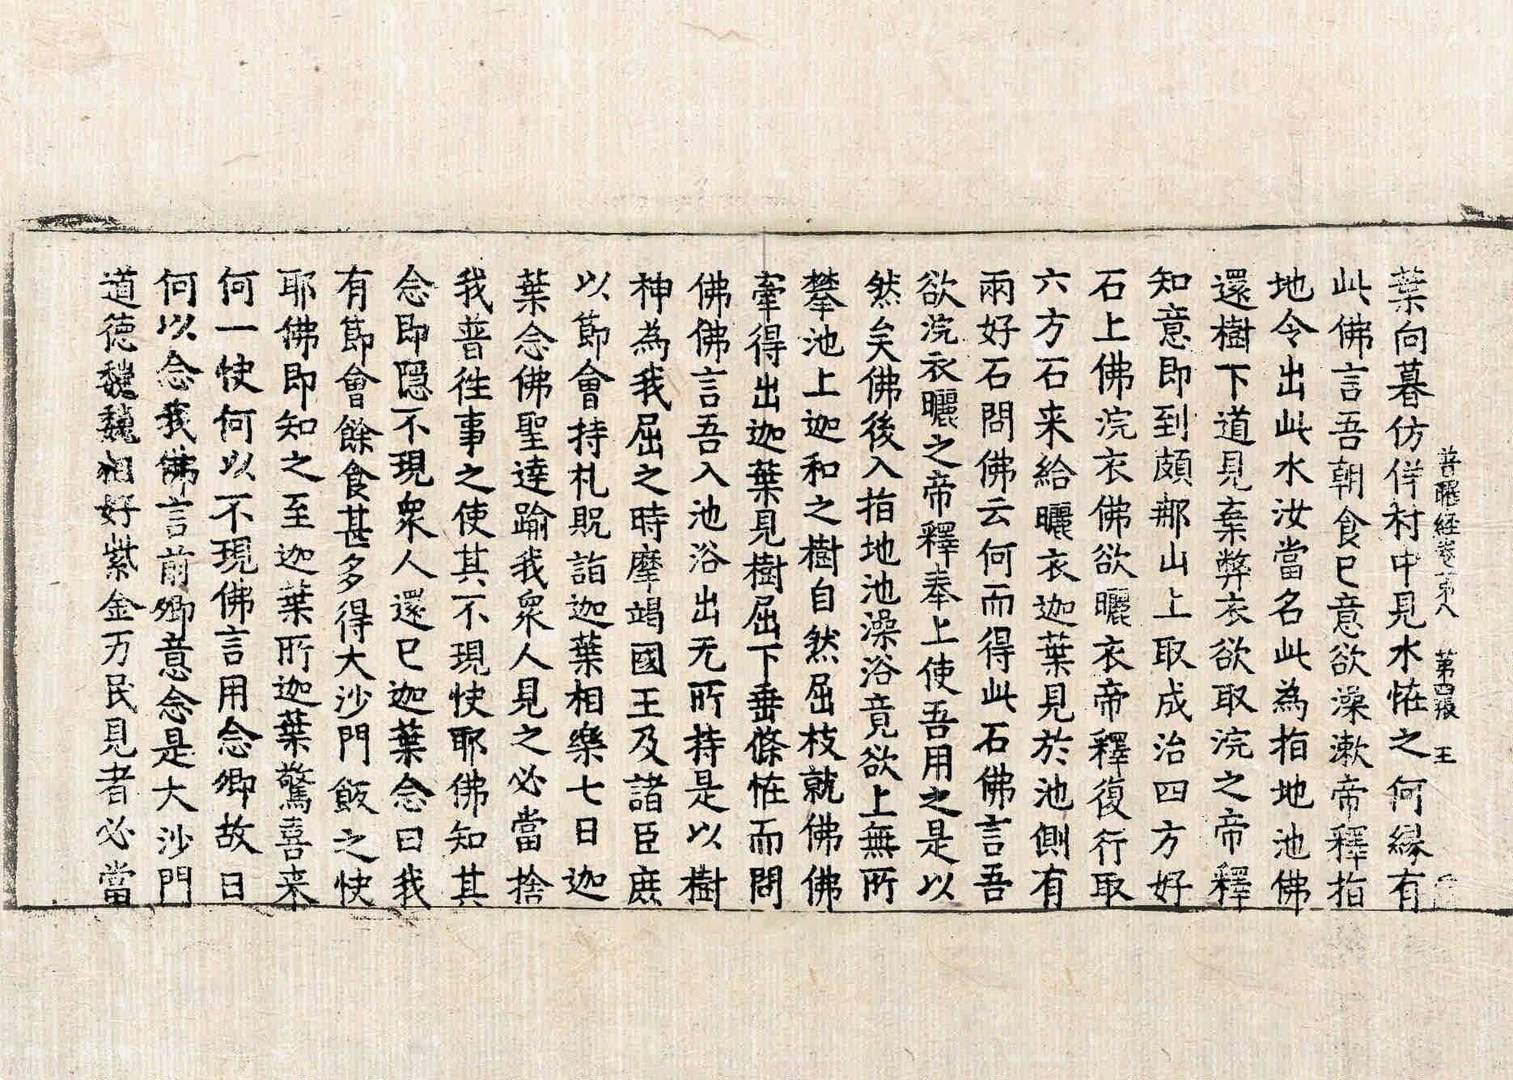 普曜經卷第八 第四張 王
葉向暮仿佯村中見水恠之何緣有
此佛言吾朝食已意欲澡漱帝釋指
地令出此水汝當名此為指地池佛
還樹下道見棄弊衣欲取浣之帝釋
知意即到頗那山上取成治四方好
石上佛浣衣佛欲曬衣帝釋復行取
六方石来給曬衣迦葉見於池側有
兩好石問佛云何而得此石佛言吾
欲浣衣曬之帝釋奉上使吾用之是以
然矣佛後入指地池澡浴竟欲上無所
攀池上迦和之樹自然屈枝就佛佛
牽得出迦葉見樹屈下垂條恠而問
佛佛言吾入池浴出无所持是以樹
神為我屈之時摩竭國王及諸臣庶
以節會持札貺詣迦葉相樂七日迦
葉念佛聖達踰我衆人見之必當捨
我普徃事之使其不現快耶佛知其
念即隱不現衆人還已迦葉念曰我
有節會餘食甚多得大沙門飯之快
耶佛即知之至迦葉所迦葉驚喜来
何一快何以不現佛言用念卿故曰
何以念我佛言前卿意念是大沙門
道德巍巍相好紫金万民見者必當